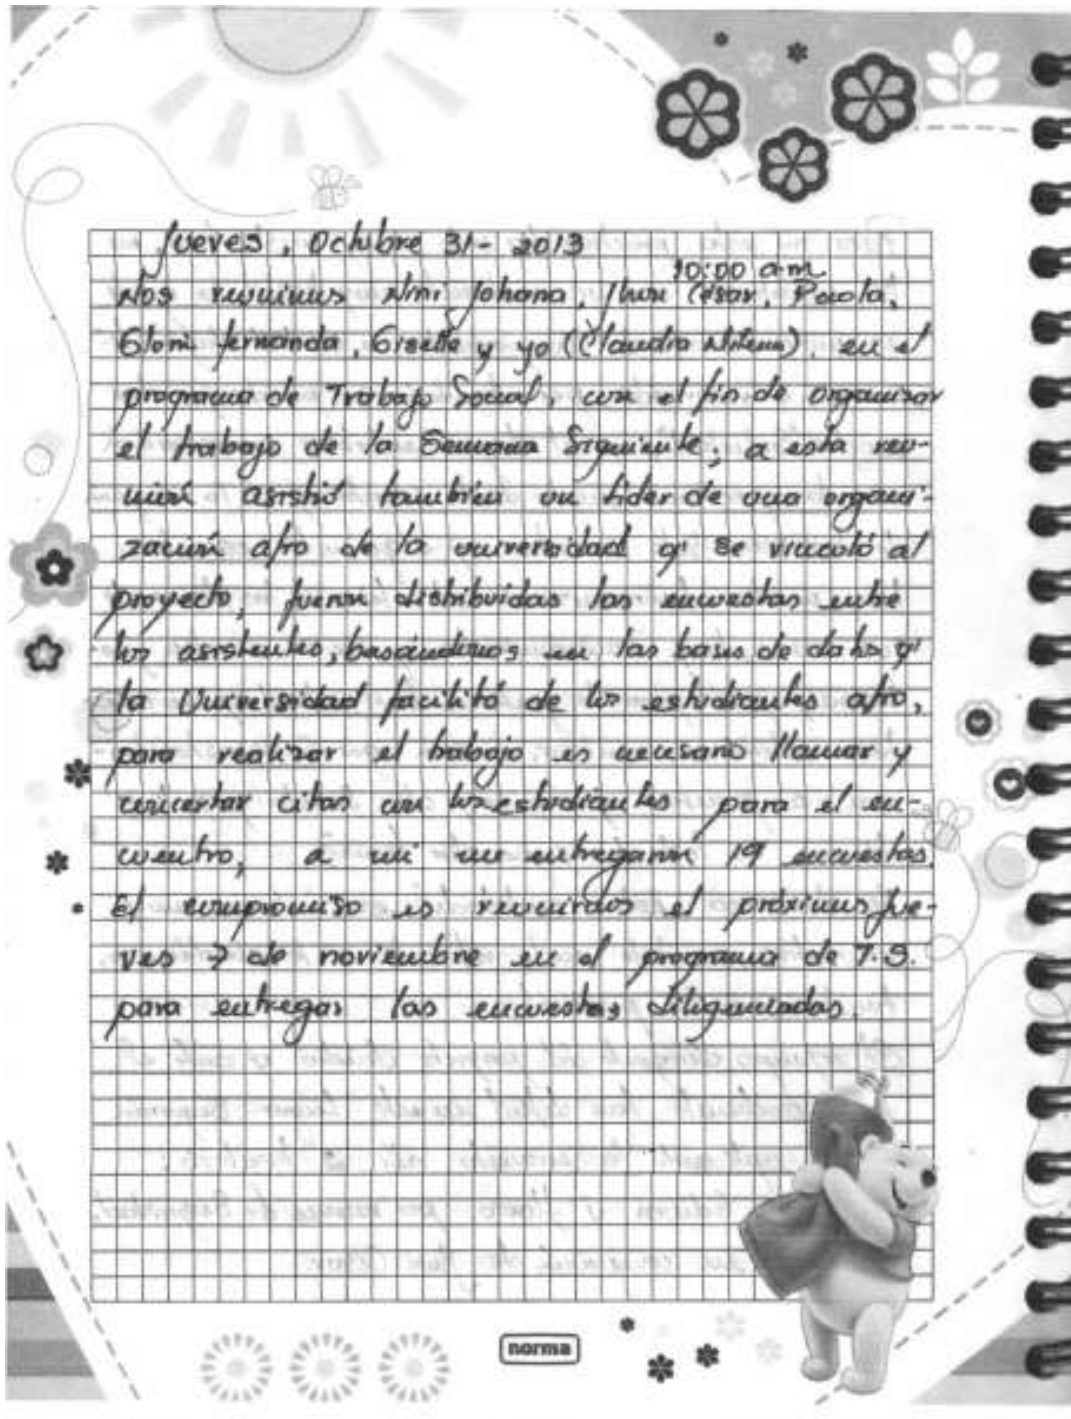 Jueves, Octubre 31- 2013
10:00 a.m.
Nos reunimos Johana, César, Paola,
Gloria fernanda, Giselle y yo (Claudia Milena), en el
programa de Trabajo Social, con el fin de organizar
el trabajo de la Semana Siguiente; a esta reu-
nión asistió también un líder de una organi-
zación afro de la universidad q' se vinculó al
proyecto, fueron distribuidas las encuestas entre
los asistentes, basándonos en las bases de datos q'
la Universidad facilitó de los estudiantes afro,
para realizar el trabajo es necesario llamar y
concertar citas con los estudiantes para el en-
cuentro, a mi me entregaron 19 encuestas.
• El compromiso es reunirnos el próximo jue-
ves 7 de noviembre en el programa de T.S.
para entregar las encuestas diligenciadas.
norma